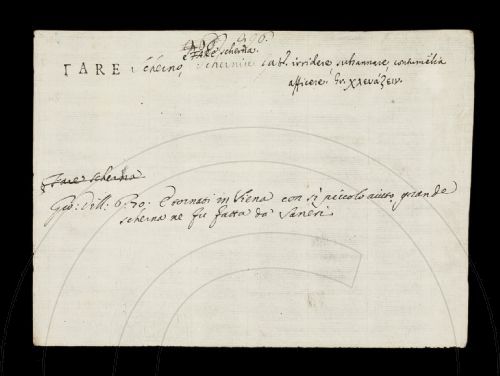 906.
e Fare scherna.
FARE scherno, schernire Lat. irridere subsannare, contumelia
afficere Gr. χλευάζειν.
Fare scherna
Gio: Vill: 6: 70: E tornati in Siena con sì piccolo aiuto, grande
scherna ne fu fatta da Sanesi.